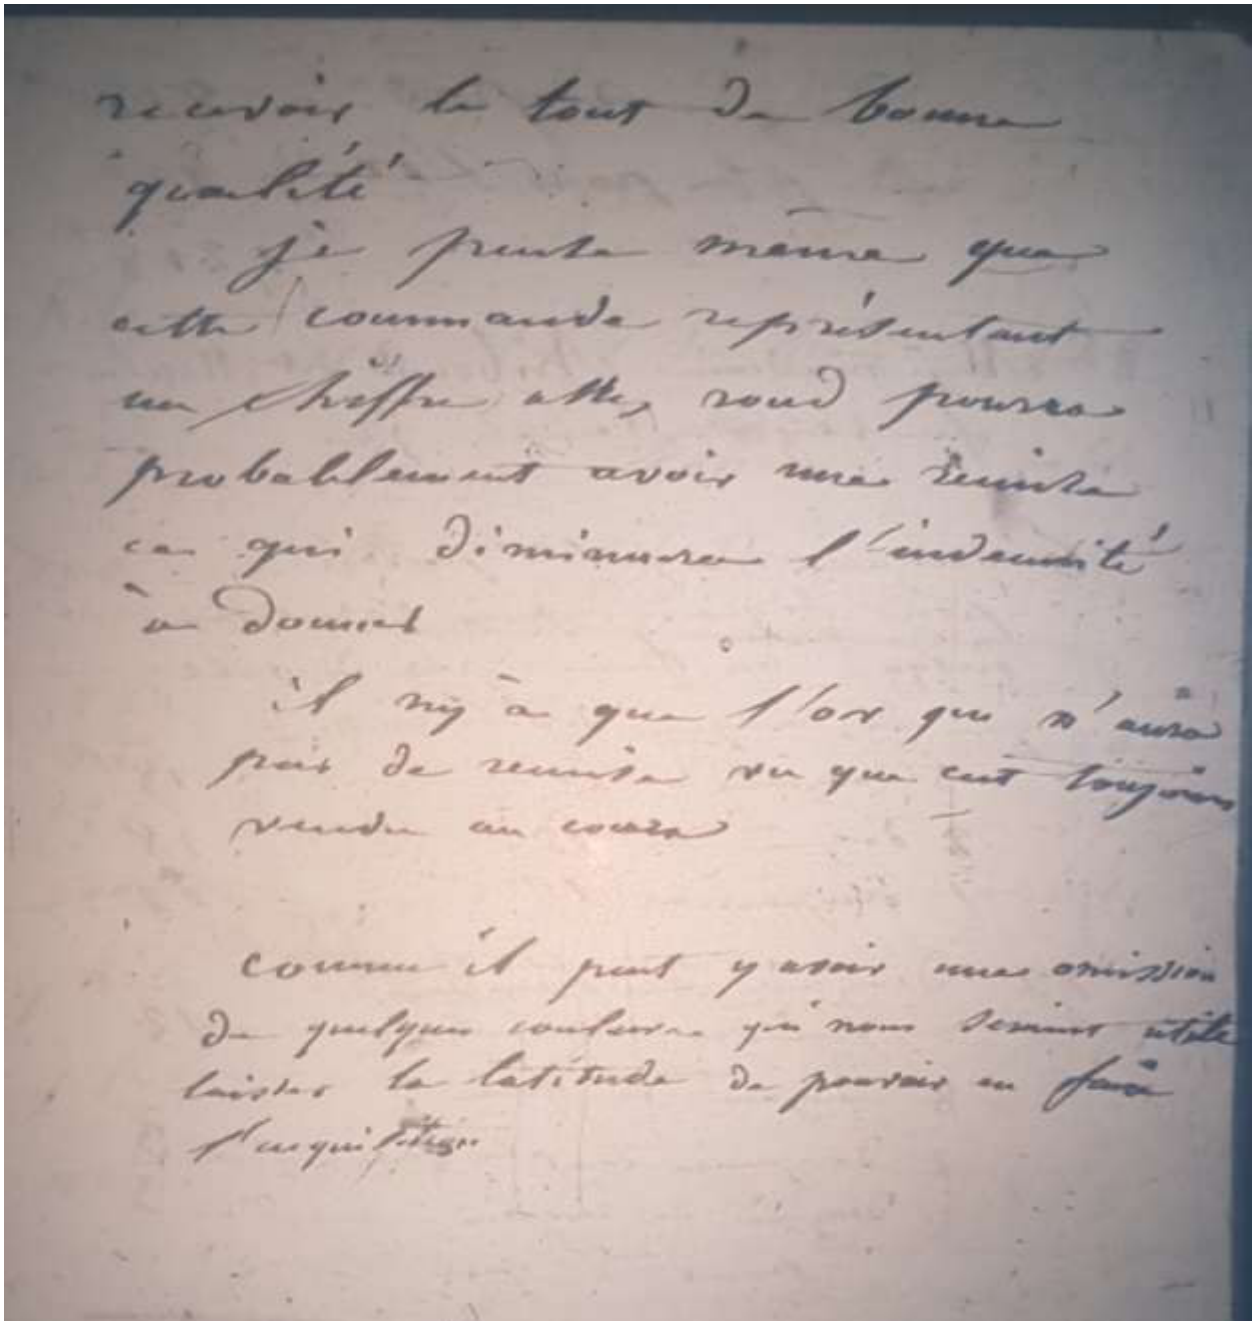 recevoir le tout de bonne
qualité
je pense même que
cette commande représentant
un chiffre assez rond pourra
probablement avoir une remise
ce qui diminuera l'indemnité
à donner
il ny à que l'or qui n'aura
pas de remise vu que cest toujours
vendu au cours
comme il peut y avoir une omission
de quelques couleurs qui nous serait utile
laisser la latitude de pouvoir en faire